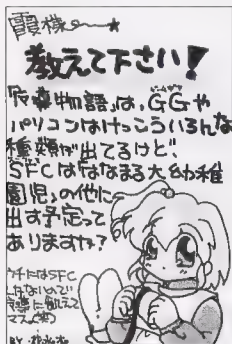 霞様
教えて下さい!
物語」は、GGや
パソコンはけっこういろんな
種類が出てるけど、
SFCは『はなまる大幼稚
園児』の他に
出す予定って
ありますか?
ウチにはSFC
マス
BY